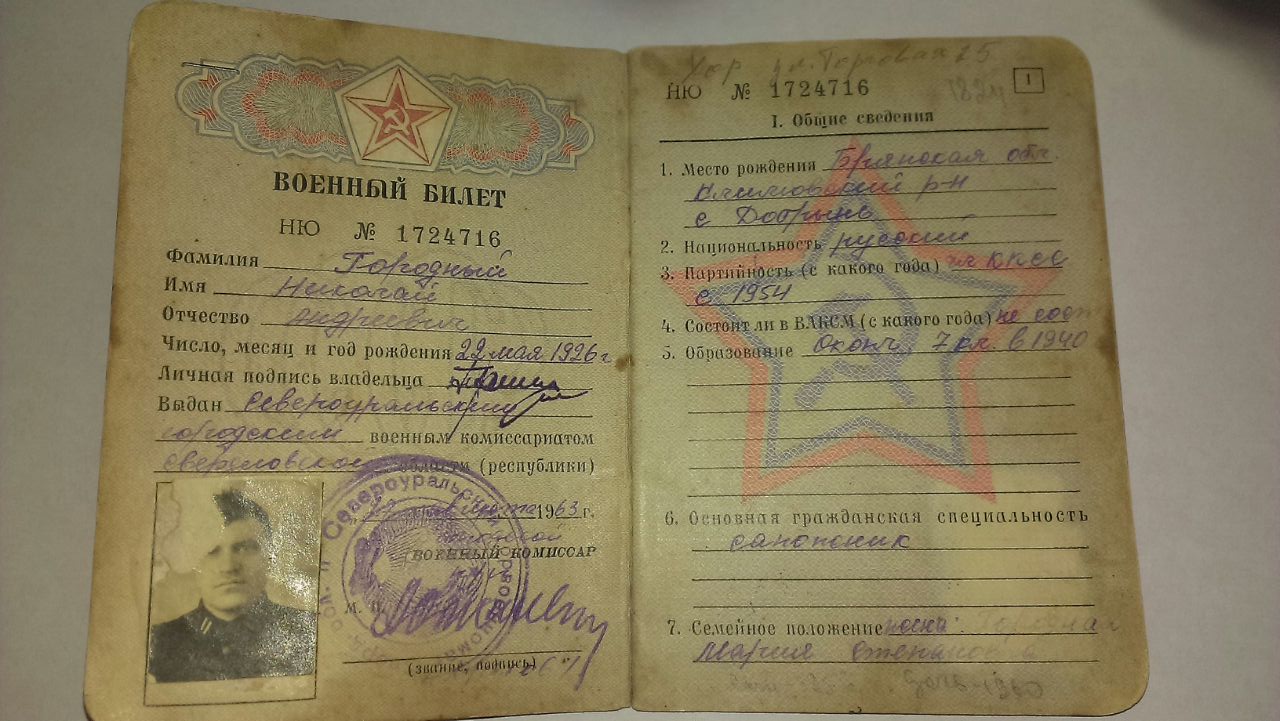 ВОЕННЫЙ БИЛЕТ
НЮ № 1724716
Фамилия Городный
Имя Николай
Отчество Андреевич
Число, месяц и год рождения 22 мая 1926 г
Личная подпись владельца
Выдан Североуральским
городским военным комиссариатом
Свердловской области (республики)
1963 г.
ВОЕННЫЙ КОМИССАР
М. П.
(звание, подпись)
Укр ул. Торговая 25
НЮ № 1724716
1
I. Общие сведения
1. Место рождения Брянская обл.
Климовский р-н
с Добрынь
2. Национальность русский
3. Партийность (с какого года) чл КПСС
с 1954
4. Состоит ли в ВЛКСМ (с какого года) не сост
5. Образование Оконч. 7 кл в 1940
6. Основная гражданская специальность
сапожник
7. Семейное положение жена: Городная
Мария Степановна
дочь-1960